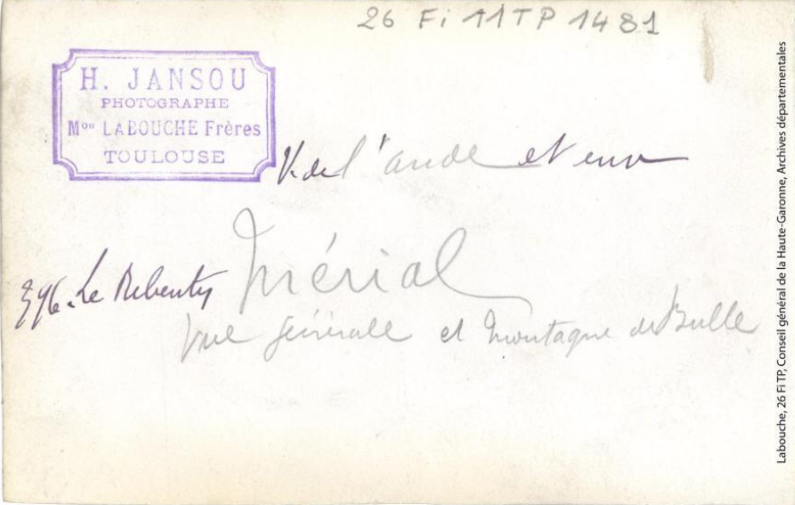 26 Fi 11 TP 1481
H. JANSOU
PHOTOGRAPHE
Mon LABOUCHE Frères
TOULOUSE
V. de l'aude et env
396. Le Rebenty Mérial
Vue générale et Montagne de Bulle
Labouche, 26 Fi TP, Conseil général de la Haute-Garonne, Archives départementales